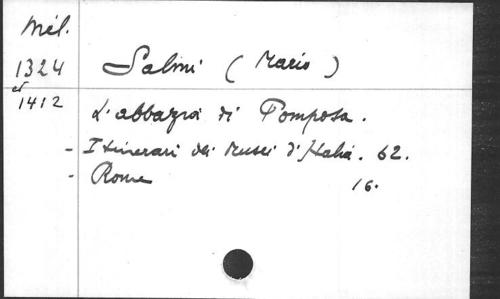 Mél.
1324 Salmi (Mario)
et
1412 L'abbazia di Pomposa.
- Itinerari dei Musei d'Italia. 62.
- Rome 16.